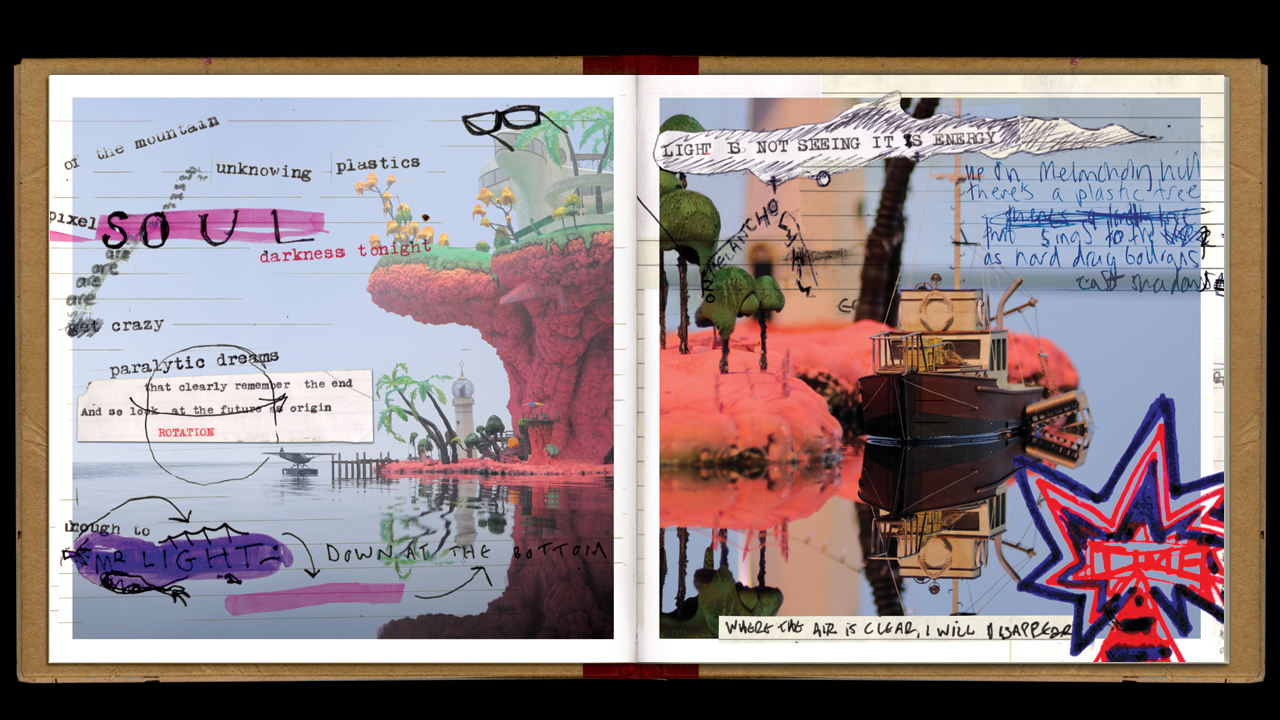 of the mountain
unknowing plastics
pixel
SOUL
darkness tonight
are
are
are
are
get crazy
paralytic dreams
that clearly remember the end
And so look at the future as origin
ROTATION
rough to
MR LIGHT
DOWN AT THE BOTTOM
LIGHT IS NOT SEEING IT IS ENERGY
up on Melancholy hill
there's a plastic tree
sings to the
as hard drug
cast shadow
ON MELANCHO
WHERE THE AIR IS CLEAR, I WILL DISAPPEAR